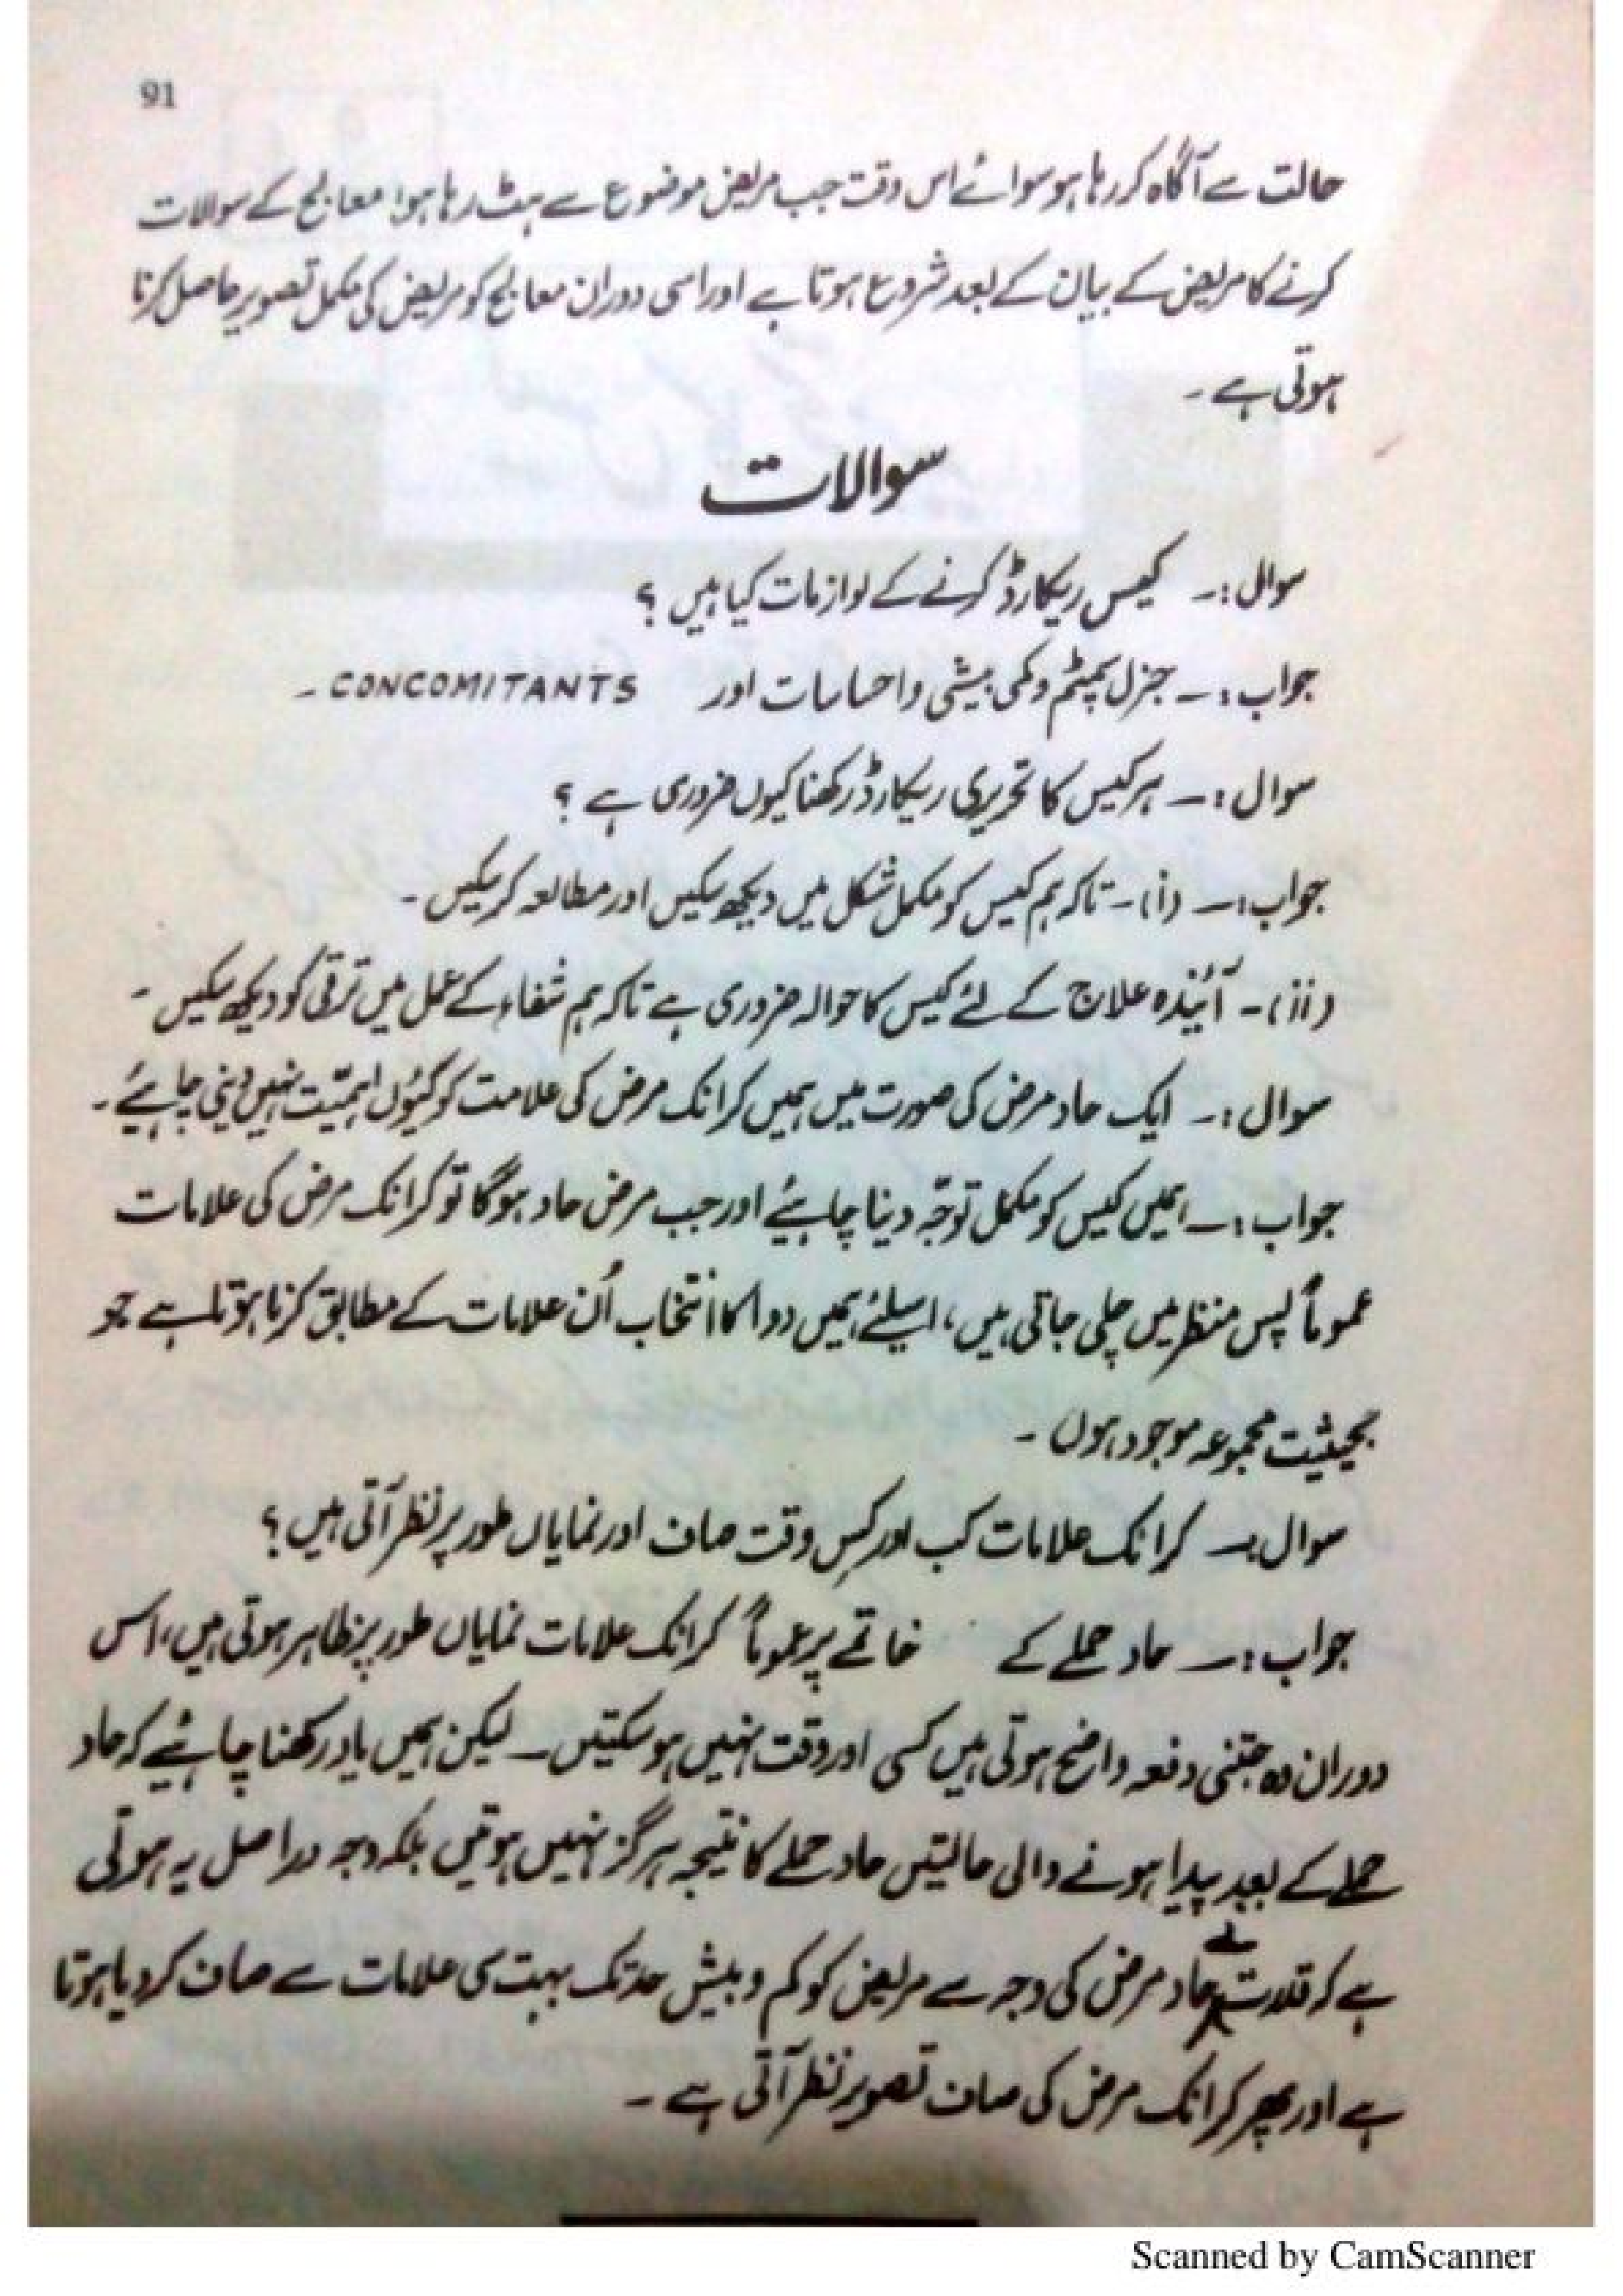 91
حالت سے آگاہ کر رہا ہو سوائے اس وقت جب مریض موضوع سے ہٹ رہا ہو۔ معالج کے سوالات
کرنے کا مریض کے بیان کے بعد شروع ہوتا ہے اور اسی دوران معالج کو مریض کی مکمل تصویر حاصل کرنا
ہوتی ہے ۔
سوالات
سوال :۔ کیس ریکارڈ کرنے کے لوازمات کیا ہیں ؟
جواب :۔ جنرل سمپٹم و کمی بیشی و احساسات اور CONCOMITANTS ۔
سوال :۔ ہر کیس کا تحریری ریکارڈ رکھنا کیوں ضروری ہے ؟
جواب :۔ (i) ۔ تاکہ ہم کیس کو مکمل شکل میں دیکھ سکیں اور مطالعہ کر سکیں ۔
(ii) ۔ آئیندہ علاج کے لئے کیس کا حوالہ ضروری ہے تاکہ ہم شفاء کے عمل میں ترقی کو دیکھ سکیں ۔
سوال :۔ ایک حاد مرض کی صورت میں ہمیں کرانک مرض کی علامت کو کیوں اہمیّت نہیں دینی چاہئے ۔
جواب :۔ ہمیں کیس کو مکمل توجّہ دینا چاہئے اور جب مرض حاد ہوگا تو کرانک مرض کی علامات
عموماً پس منظر میں چلی جاتی ہیں، اسلئے ہمیں دوا کا انتخاب اُن علامات کے مطابق کرنا ہوتا ہے جو
بحیثیت مجموعہ موجود ہوں ۔
سوال :۔ کرانک علامات کب اور کس وقت صاف اور نمایاں طور پر نظر آتی ہیں ؟
جواب :۔ حاد حملے کے خاتمے پر عموماً کرانک علامات نمایاں طور پر ظاہر ہوتی ہیں، اس
دوران وہ جتنی دفعہ واضح ہوتی ہیں کسی اور وقت نہیں ہو سکتیں ۔ لیکن ہمیں یاد رکھنا چاہئیے کہ حاد
حملے کے بعد پیدا ہونے والی حالتیں حاد حملے کا نتیجہ ہرگز نہیں ہوتیں بلکہ وجہ دراصل یہ ہوتی
ہے کہ قدرت نے حاد مرض کی وجہ سے مریض کو کم و بیش حد تک بہت سی علامات سے صاف کر دیا ہوتا
ہے اور پھر کرانک مرض کی صاف تصویر نظر آتی ہے ۔
Scanned by CamScanner